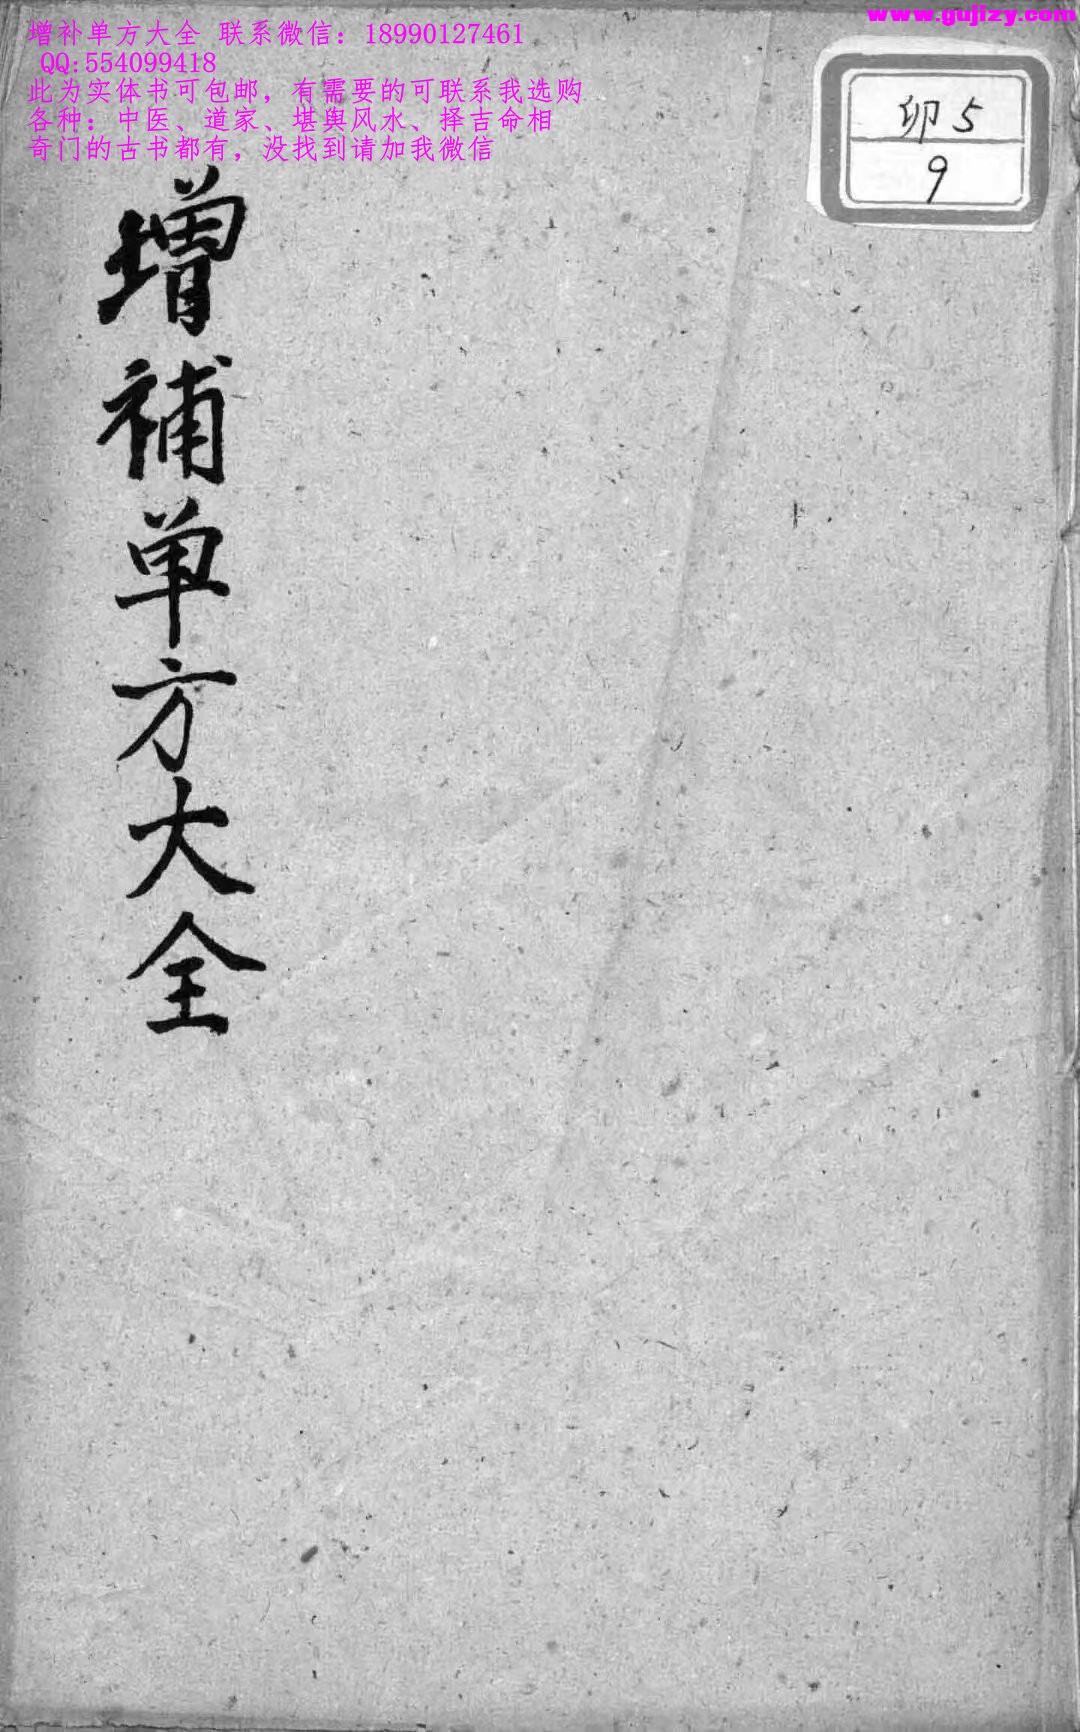 www.gujizy.com
增补单方大全 联系微信：18990127461
QQ:554099418
此为实体书可包邮，有需要的可联系我选购
各种：中医、道家、堪舆风水、择吉命相
奇门的古书都有，没找到请加我微信
卯5
9
增補单方大全